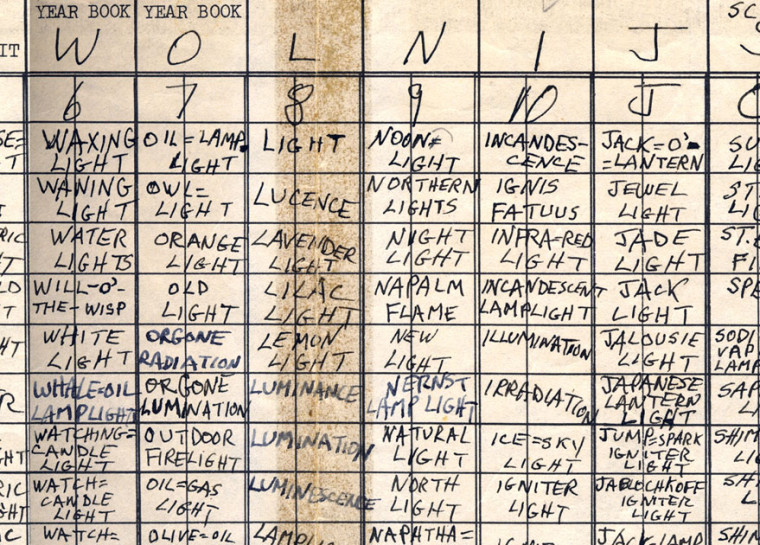 YEAR BOOK YEAR BOOK SC
IT W O L N I J
6 7 8 9 10 J
SE= WAXING OIL=LAMP LIGHT NOON= INCANDES- JACK=O'- SU
T LIGHT LIGHT LIGHT CENCE =LANTERN LIG
WANING OWL= LUCENCE NORTHERN IGNIS JEWEL ST
LIGHT LIGHT LIGHTS FATUUS LIGHT LIG
RIC WATER ORANGE LAVENDER NIGHT INFRA=RED JADE ST.E
T LIGHTS LIGHT LIGHT LIGHT LIGHT LIGHT FI
LD WILL-O'- OLD LILAC NAPALM INCANDESCENT JACK SPE
T THE-WISP LIGHT LIGHT FLAME LAMPLIGHT LIGHT
HT WHITE ORGONE LEMON NEW ILLUMINATION JALOUSIE SODI
LIGHT RADIATION LIGHT LIGHT LIGHT VAP
LAMP
R WHALE=OIL ORGONE LUMINANCE NERNST IRRADIATION JAPANESE SAP
LAMPLIGHT LUMINATION LAMP LIGHT LANTERN LI
LIGHT
WATCHING= OUTDOOR LUMINATION NATURAL ICE=SKY JUMP=SPARK SHIM
CANDLE FIRELIGHT LIGHT LIGHT IGNITER LI
GHT LIGHT LIGHT
RIC WATCH= OIL=GAS LUMINESCENCE NORTH IGNITER JABLOCHKOFF SHI
CANDLE LIGHT LIGHT LIGHT IGNITER LI
GHT LIGHT LIGHT
WATCH= OLIVE=OIL LAMPLI NAPHTHA= JACKLAMP SHIN